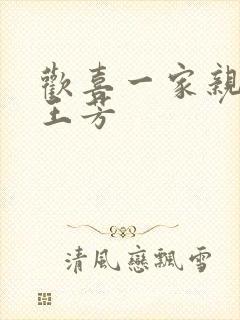 歡喜一家親
土芳
清風戀飄雪